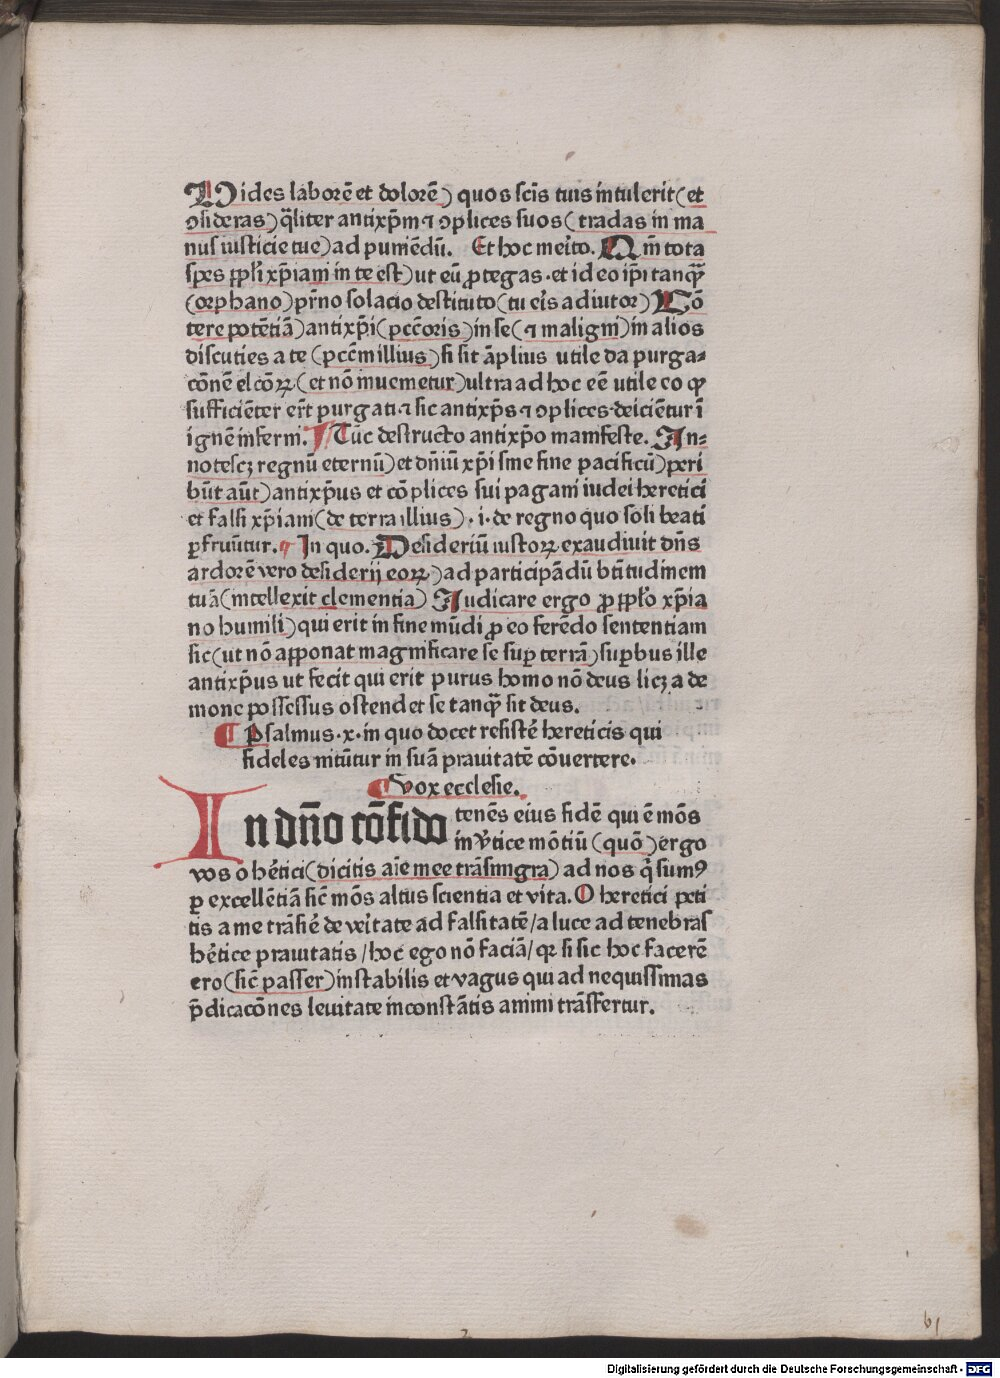 Vides laborē et dolorē) quos scīs tuis intulerit (et
ɔsideras) q̄liter antixp̄m ⁊ ɔplices suos (tradas in ma
nus iusticie tue) ad puniēdū. Et hoc mei̓to. Qm̄ tota
spes pp̄li xp̄iani in te est) ut eū ꝓtegas · et ideo ip̄i tanqȝ̄
(orphano) pr̄no solacio destituto (tu ei̓s adiutor) Cō
tere potētiā) antixp̄i (pcc̄oris) in se (⁊ maligni) in alios
discuties a te (pcc̄m illius) si sit āplius utile da purga⸗
cōnē elcōꝝ (et nō inuenietur) ultra ad hoc eē utile eo ꝙ
sufficiēter er̄t purgati ⁊ sic antixp̄s ⁊ ɔplices deiciētur ī
ignē inferni. Tūc destructo antixp̄o manifeste. In⸗
notescꝫ regnū eternū) et dn̄iū xp̄i sine fine pacificū) peri
būt aūt) antixp̄us et cōplices sui pagani iudei heretici
et falsi xp̄iani (de terra illius) · i · de regno quo soli beati
ꝑfruūtur. In quo. Desideriū iustoꝝ exaudiuit dn̄s
ardorē vero desiderij eoꝝ) ad participādū bt̄itudinem
tuā (intellexit clementia) Judicare ergo ꝓ pp̄lo xp̄ia
no humili) qui erit in fine mūdi ꝓ eo ferēdo sententiam
sic (ut nō apponat magnificare se suꝑ terrā) suꝑbus ille
antixp̄us ut fecit qui erit purus homo nō deus licꝫ a de
mone possessus ostendet se tanqȝ̄ sit deus.
¶ Psalmus · x · in quo docet resistē hereticis qui
fideles nitūtur in suā prauitatē cōuertere.
¶ Vox ecclesie.
In dn̄o cōfido tenēs eius fidē qui ē mōs
in v̓tice mōtiū (quō) ergo
vos o hētici (dicitis aīe mee trāsmigra) ad nos q̓ sumꝰ
ꝑ excellētiā sic̄ mōs altus scientia et vita. O heretici peti
tis a me trāsie̓ de vei̓tate ad falsitatē / a luce ad tenebras
hētice prauitatis / hoc ego nō faciā / qꝛ si sic hoc facerē
ero (sic̄ passer) instabilis et vagus qui ad nequissimas
p̄dicacōnes leuitate inconstātis animi trāsfertur.
b1
Digitalisierung gefördert durch die Deutsche Forschungsgemeinschaft - DFG